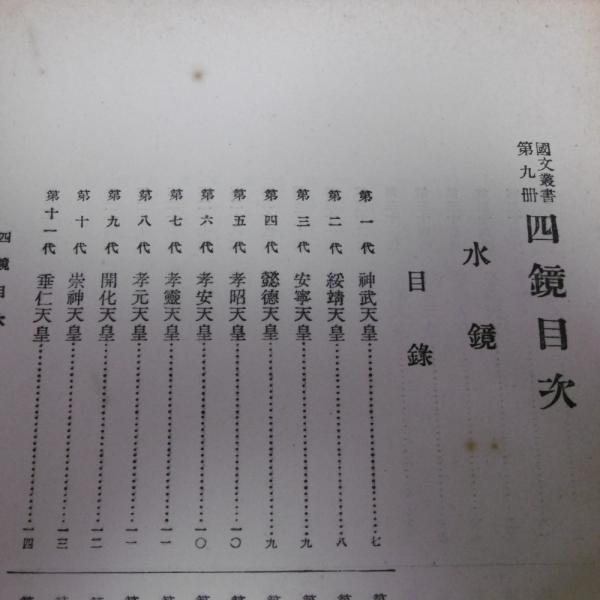 國文叢書
第九册
四鏡目次
水鏡
目錄
第一代 神武天皇……七
第二代 綏靖天皇……八
第三代 安寧天皇……九
第四代 懿德天皇……九
第五代 孝昭天皇……一〇
第六代 孝安天皇……一〇
第七代 孝靈天皇……一一
第八代 孝元天皇……一一
第九代 開化天皇……一二
第十代 崇神天皇……一三
第十一代 垂仁天皇……一四
四鏡目次